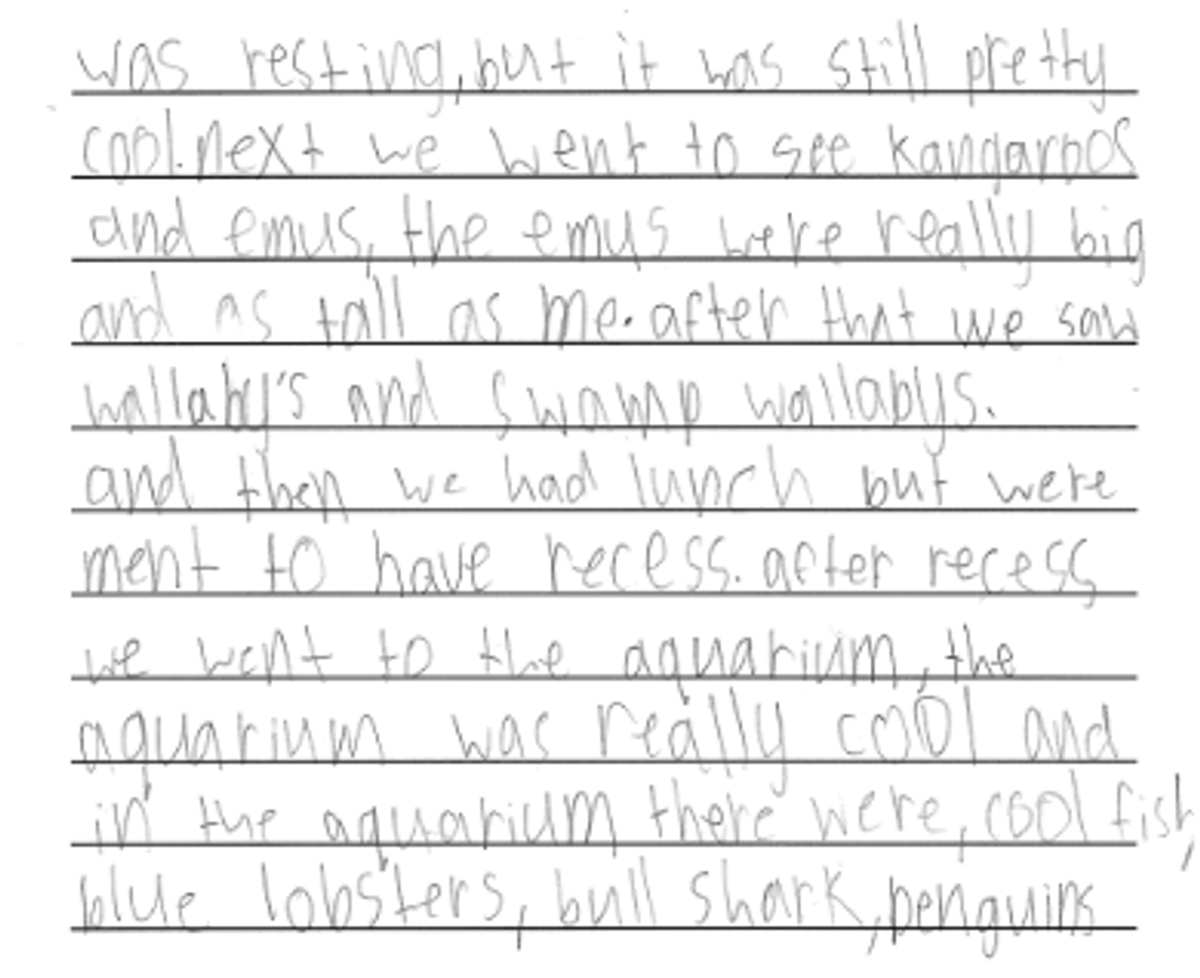 was resting, but it was still pretty
cool. next we went to see kangaroos
and emus, the emus were really big
and as tall as me. after that we saw
wallaby's and swamp wallabys.
and then we had lunch but were
ment to have recess. after recess
we went to the aquarium, the
aquarium was really cool and
in the aquarium there were, cool fish,
blue lobsters, bull shark, penguins